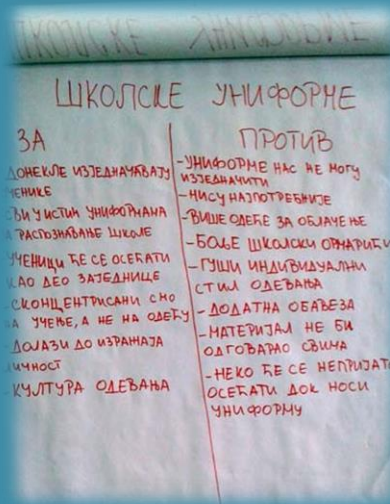 ШКОЛСКЕ УНИФОРМЕ
ШКОЛСКЕ УНИФОРМЕ
ЗА
ДОНЕКЛЕ ИЗЈЕДНАЧАВАЈУ
УЧЕНИКЕ
СВИ У ИСТИМ УНИФОРМАМА
ЗА РАСПОЗНАВАЊЕ ШКОЛЕ
УЧЕНИЦИ ЋЕ СЕ ОСЕЋАТИ
КАО ДЕО ЗАЈЕДНИЦЕ
-СКОНЦЕНТРИСАНИ СМО
НА УЧЕЊЕ, А НЕ НА ОДЕЋУ
-ДОЛАЗИ ДО ИЗРАЖАЈА
ЛИЧНОСТ
-КУЛТУРА ОДЕВАЊА
ПРОТИВ
-УНИФОРМЕ НАС НЕ МОГУ
ИЗЈЕДНАЧИТИ
-НИСУ НАЈПОТРЕБНИЈЕ
-ВИШЕ ОДЕЋЕ ЗА ОБЛАЧЕЊЕ
-БОЉЕ ШКОЛСКИ ОРМАРИЋИ
-ГУШИ ИНДИВИДУАЛНИ
СТИЛ ОДЕВАЊА
-ДОДАТНА ОБАВЕЗА
-МАТЕРИЈАЛ НЕ БИ
ОДГОВАРАО СВИМА
-НЕКО ЋЕ СЕ НЕПРИЈАТНО
ОСЕЋАТИ ДОК НОСИ
УНИФОРМУ